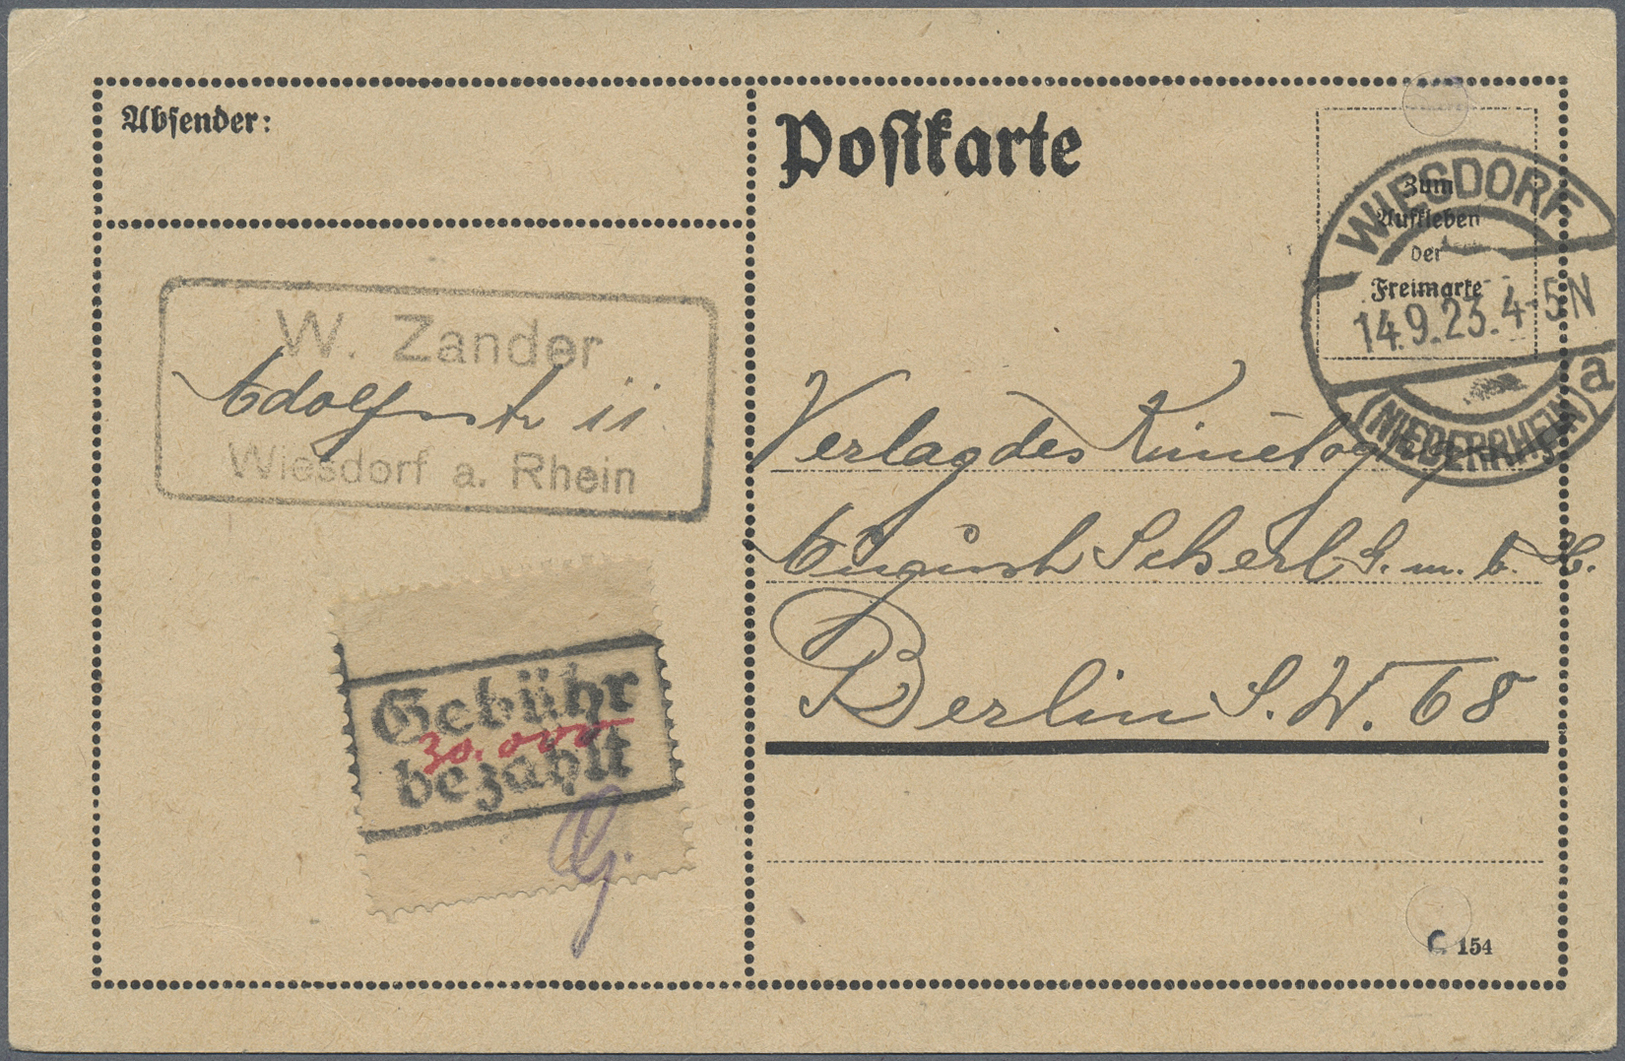 Absender:
W. Zander
Adolfstr. 11
Wiesdorf a. Rhein
Gebühr
30.000
bezahlt
Postkarte
Zum
Aufkleben
der
Freimarke
WIESDORF
14.9.23.4-5N
a
(NIEDERRHEIN)
Verlag des Kinetog
August Scherl G. m. b. H.
Berlin S. W. 68
C 154